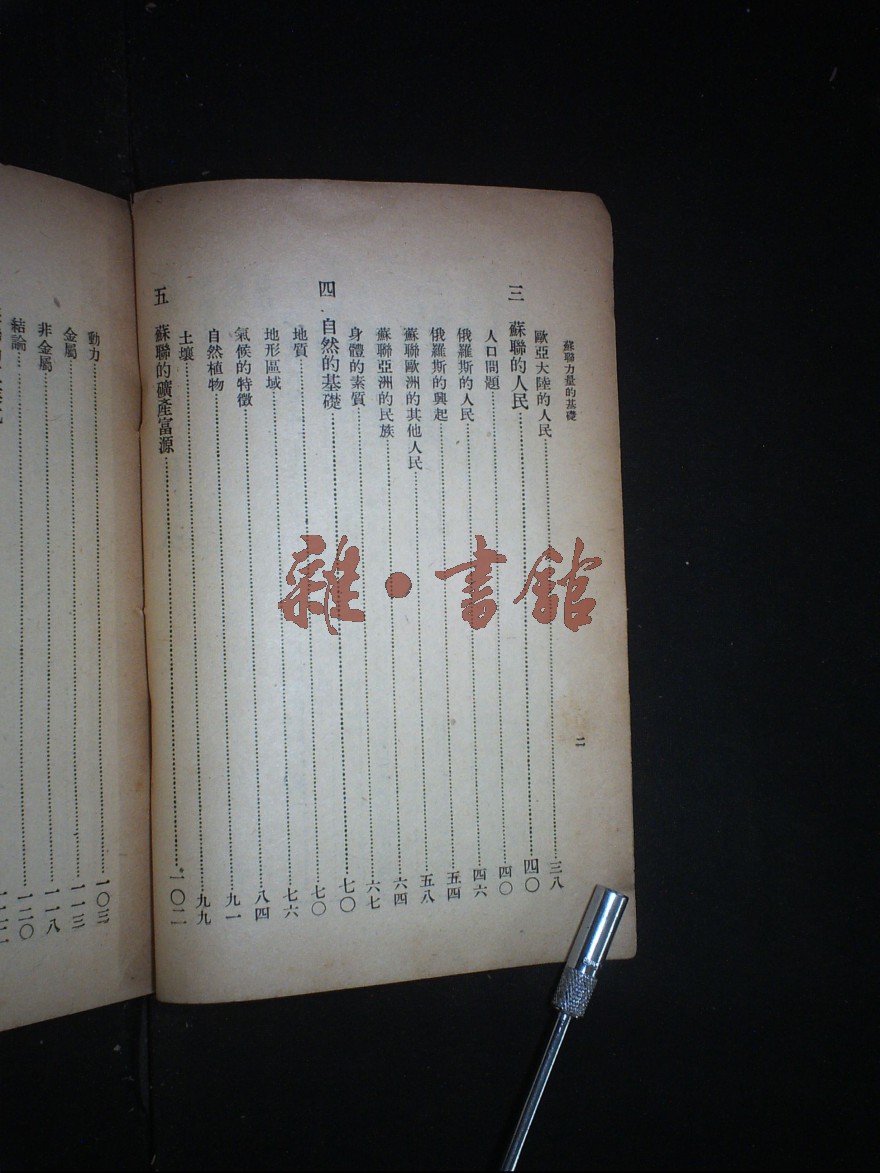 蘇聯力量的基礎
二
歐亞大陸的人民……三八
三 蘇聯的人民……四〇
人口問題……四〇
俄羅斯的人民……四六
俄羅斯的興起……五四
蘇聯歐洲的其他人民……五八
蘇聯亞洲的民族……六四
身體的素質……六七
四 自然的基礎……七〇
地質……七〇
地形區域……七六
氣候的特徵……八四
自然植物……九一
土壤……九九
五 蘇聯的礦產富源……一〇二
動力……一〇三
金屬……一一三
非金屬……一一八
結論……一二〇
雜·書館